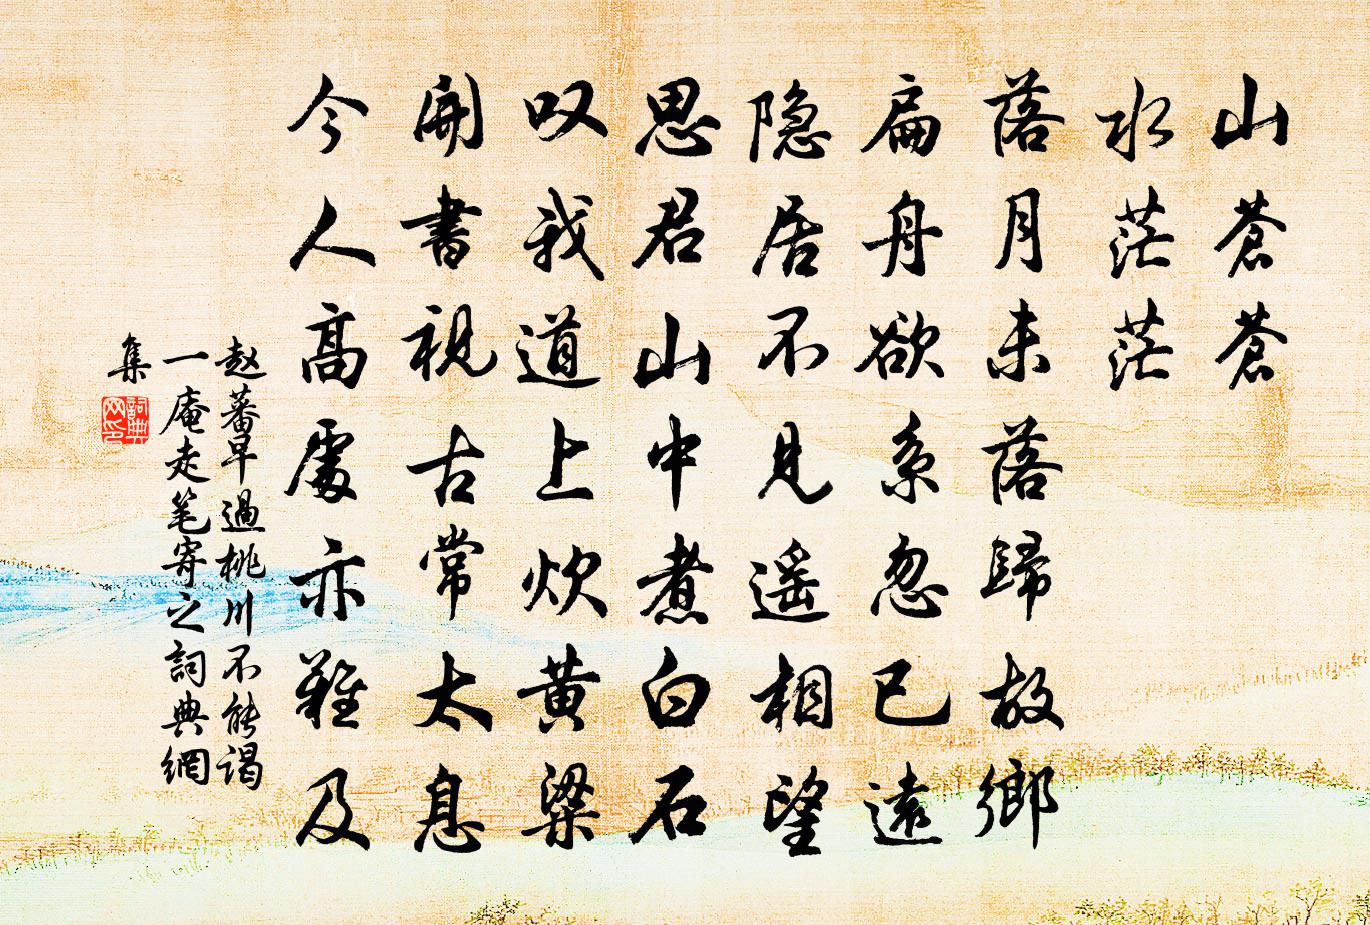 山蒼蒼
水茫茫
落月未落歸故鄉
扁舟欲系忽已遠
隐居不見遥相望
思君山中煮白石
叹我道上炊黄粱
開書視古常太息
今人高處亦難及
赵蕃早過桃川不能谒
一庵走笔寄之詞典網
集
詞典網印